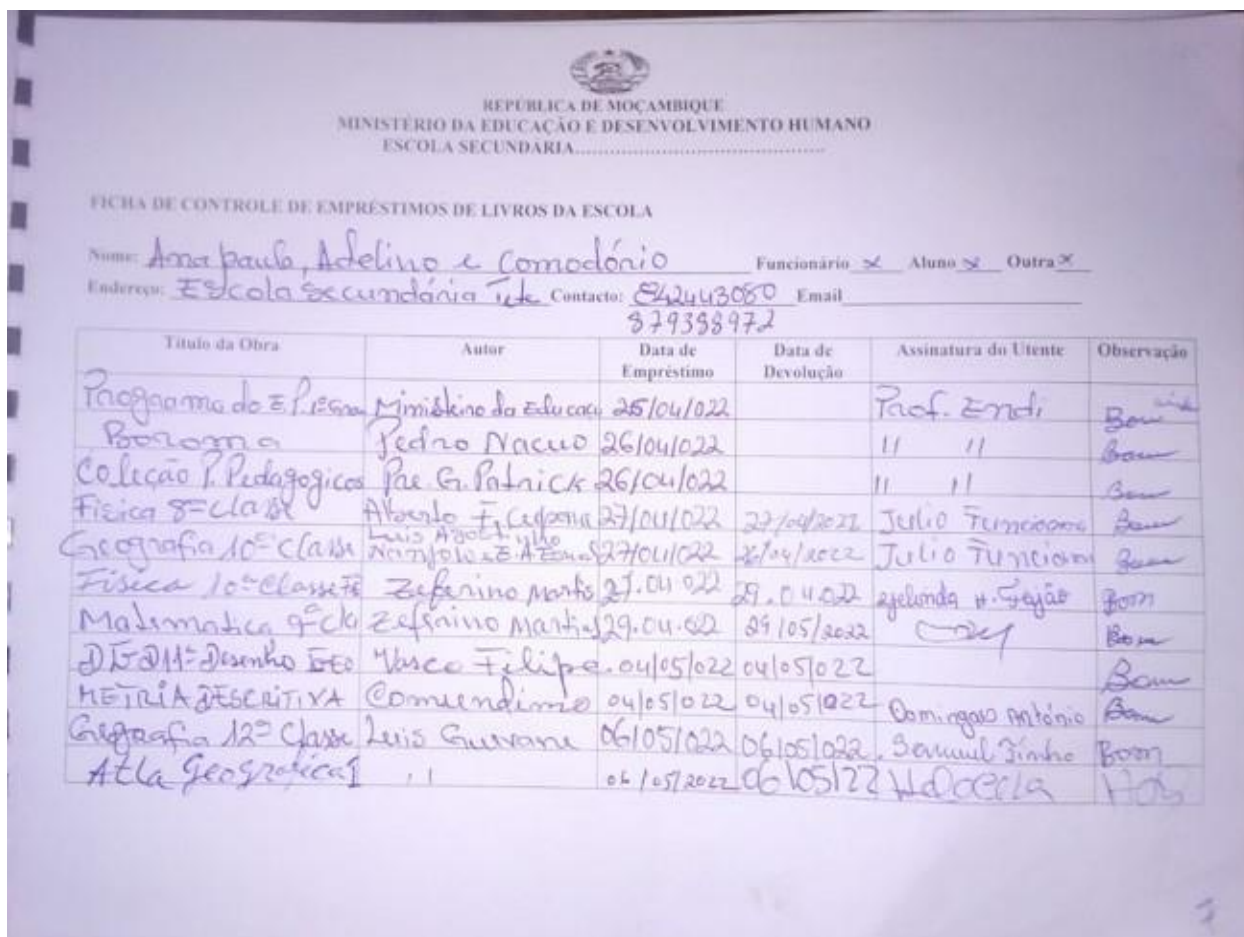 REPÚBLICA DE MOÇAMBIQUE
MINISTÉRIO DA EDUCAÇÃO E DESENVOLVIMENTO HUMANO
ESCOLA SECUNDÁRIA
FICHA DE CONTROLE DE EMPRÉSTIMOS DE LIVROS DA ESCOLA
Nome: Ana paula, Adelino e Comodónio Funcionário x Aluno x Outra x
Endereço: Escola Secundária Tete Contacto: 842443080 Email
879388972
Título da Obra Autor Data de Empréstimo Data de Devolução Assinatura do Utente Observação
Programa do Ministério da Educaçã 25/04/022 Prof. Endi Bom
Boroma Pedro Nacuo 26/04/022 11 11 Bom
Coleção P. Pedagogicos Pae G. Patrick 26/04/022 11 11 Bom
Fisica 8ª classe Alberto F. 27/04/022 27/04/2022 Julio Bom
Geografia 10ª classe 27/04/022 Julio Bom
Fisica 10ª Classe Zeferino 29.04.022 Bom
Matematica 9ª cla Zefirino Martins 29.04.022 29/05/2022 Bom
11ª Desenho Geo Vasco Filipe. 04/05/022 04/05/022 Bom
METRIA DESCRITIVA 04/05/022 04/05/022 Domingoso António Bom
Geografia 12ª Classe Luis 06/05/022 06/05/022. Samuel Bom
Atla Geografica I 11 06/05/2022 06/05/22